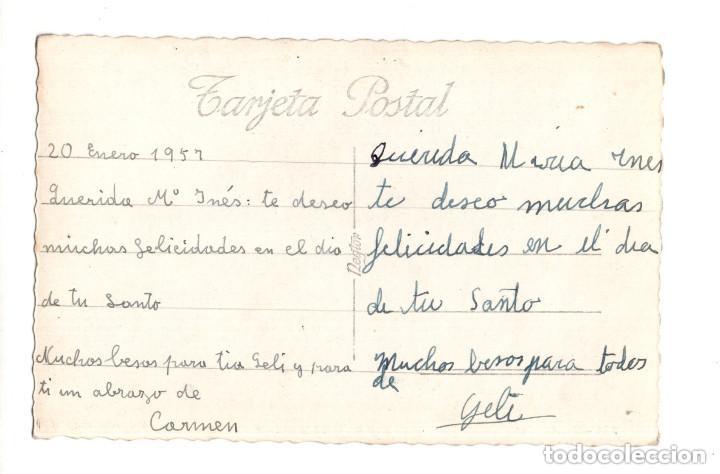 Tarjeta Postal
20 Enero 1957
Querida Mª Inés: te deseo
muchas felicidades en el dia
de tu Santo
Muchos besos para tia Geli y para
ti un abrazo de
Carmen
Querida Maria Ines
te deseo muchas
felicidades en el dia
de tu Santo
Muchos besos para todos
de
Geli
todocoleccion.net